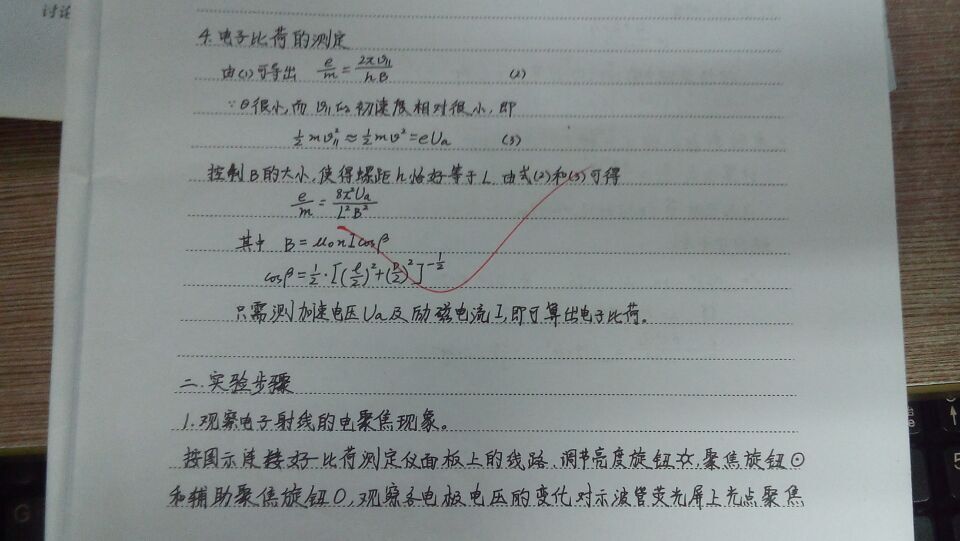 讨论
4.电子比荷的测定
由(1)可导出 e/m = 2πv∥/hB (2)
∵θ很小,而 初速度相对很小,即
½mv∥²≈½mv²=eUa (3)
控制B的大小,使得螺距h恰好等于L.由式(2)和(3)可得
e/m = 8π²Ua/L²B²
其中 B=μ₀nIcosβ
cosβ=½·[(ℓ/2)²+(D/2)²]^(-1/2)
只需测加速电压Ua及励磁电流I,即可算出电子比荷。
二.实验步骤
1.观察电子射线的电聚焦现象。
按图示连接好一比荷测定仪面板上的线路.调节亮度旋钮☆,聚焦旋钮⊙
和辅助聚焦旋钮○,观察各电极电压的变化对示波管荧光屏上光点聚焦